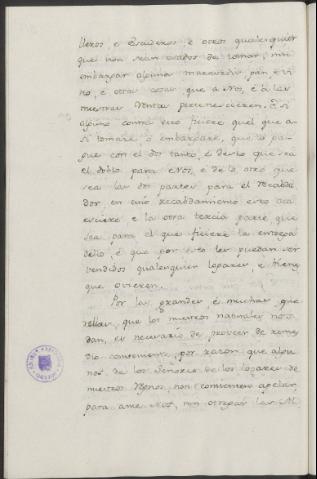 lleros, e Escuderos, e otros qualesquier
que non sean osados de tomar, nin
embargar alguna maravedis, pan, e vi
no, e otras cosas que a Nos, e a las
nuestras Rentas pertenescieren. E si
alguno contra esto ficiere quel que a
si tomare o embargare, que lo pa-
gue con el dos tanto, e desto que sea
el doblo para Nos, e de lo otro que
sea las dos partes, para el Recabda
dor en cuio Recabdamiento esto aca
esciere e la otra tercia parte, que
sea para el que ficiere la entrega
dello, e que por esto les puedan ser
vendidos qualesquier logares, e bienes
que ovieren.
Por las grandes e muchas que
rellas, que los nuestros naturales nos
dan, es necesario de proveer de reme
dio conveniente, por razon, que algu
nos de los Señores de los logares de
nuestros Regnos, non consienten apelar,
para ante Nos, nin otorgan las Al